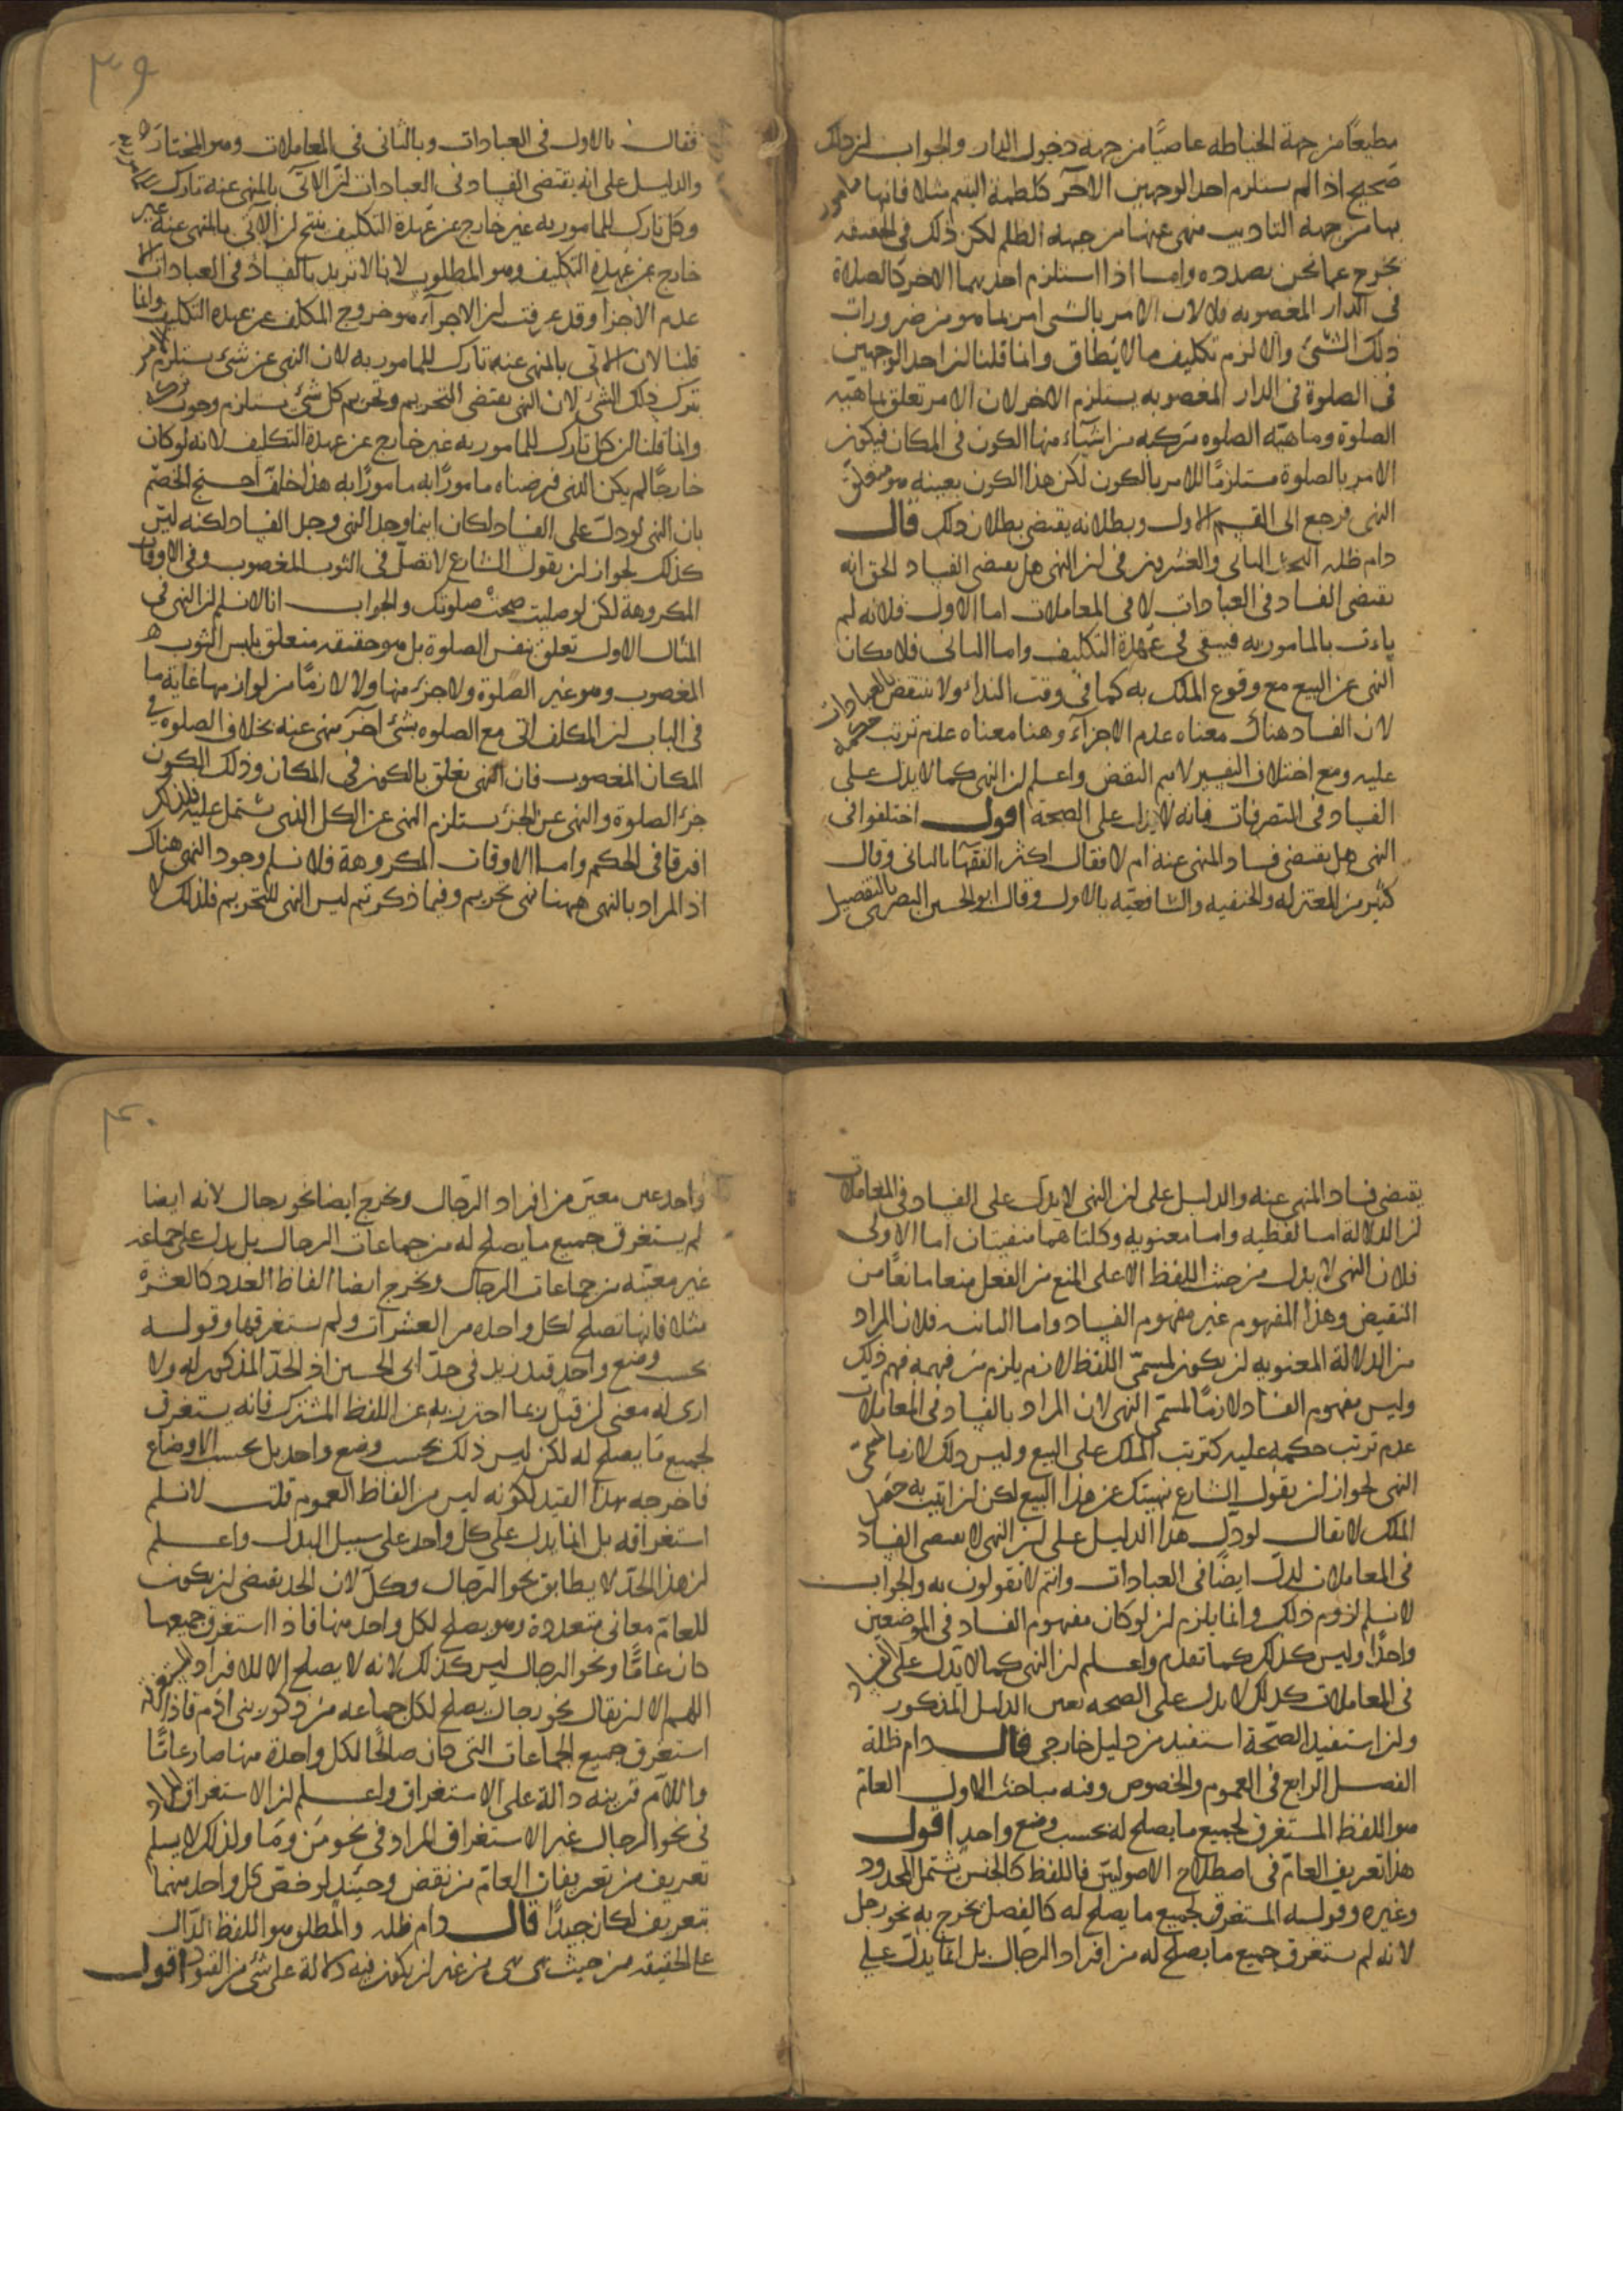 مطيعًا من جهة الخياطه عاصيًا من جهة دخول الدار والجواب ان ذلك
صحيح اذا لم يستلزم احد الوجهين الآخر كلطمة اليتيم مثلا فانها مامور
بها من جهه التاديب منهى عنها من جهه الظلم لكن ذلك فى الحقيقه
يخرج عما نحن بصدده واما اذا استلزم احدهما الاخر كالصلاة
فى الدار المغصوبه فلا لان الامر بالشى امر بما هو من ضرورات
ذلك الشئ والا لزم تكليف ما لا يطاق وانما قلنا ان احد الوجهين
فى الصلوة فى الدار المغصوبه يستلزم الاخر لان الامر تعلق بماهية
الصلوة وماهية الصلوه مركبه من اشياء منها الكون فى المكان فيكون
الامر بالصلوة مستلزمًا للامر بالكون لكن هذا الكون بعينه هو متعلق
النهى فرجع الى القسم الاول وبطلانه يقتضى بطلان ذلك قال
دام ظله البحث الثانى والعشرين فى ان النهى هل يقتضى الفساد الحق انه
يقتضى الفساد فى العبادات لا فى المعاملات اما الاول فلانه لم
يات بالمامور به فيبقى فى عهدة التكليف واما الثانى فلامكان
النهى عن البيع مع وقوع الملك به كما فى وقت النداء ولا ينتقض بالعبادات
لان الفساد هناك معناه عدم الاجزاء وهنا معناه عدم ترتب حكمه
عليه ومع اختلاف التفسير لا يتم النقض واعلم ان النهى كما لا يدل على
الفساد فى التصرفات فانه لا يدل على الصحة اقول اختلفوا فى
النهى هل يقتضى فساد المنهى عنه ام لا فقال اكثر الفقها بالثانى وقال
كثير من المعتزله والحنفيه والشافعيه بالاول وقال ابو الحسين البصرى بالتفصيل
٣٩
فقال بالاول فى العبادات وبالثانى فى المعاملات وهو المختار
والدليل على انه يقتضى الفساد فى العبادات ان الآتى بالمنهى عنه تارك
وكل تارك للمامور به غير خارج عن عهدة التكليف ينتج ان الآتى بالمنهى عنه غير
خارج عن عهدة التكليف وهو المطلوب لانا لا نريد بالفساد فى العبادات الا
عدم الاجزا وقد عرفت ان الاجزاء هو خروج المكلف عن عهدة التكليف وانما
قلنا لان الاتى بالمنهى عنه تارك للمامور به لان النهى عن شئ يستلزم الامر
بترك ذلك الشئ لان النهى يقتضى التحريم وتحريم كل شئ يستلزم وجوب تركه
وانما قلنا ان كل تارك للمامور به غير خارج عن عهدة التكليف لانه لو كان
خارجًا لم يكن الذى فرضناه مامورًا به مامورًا به هذا خلف احتج الخصم
بان النهى لو دل على الفساد لكان اينما وجد النهى وجد الفساد لكنه ليس
كذلك لجواز ان يقول الشارع لا تصل فى الثوب المغصوب وفى الاوقات
المكروهة لكن لو صليت صحت صلوتك والجواب انا لا نسلم ان النهى فى
المثال الاول تعلق بنفس الصلوة بل هو حقيقه متعلق بلبس الثوب
المغصوب وهو غير الصلوة ولا جزء منها ولا لازمًا من لوازمها غاية ما
فى الباب ان المكلف اتى مع الصلوه بشئ آخر منهى عنه بخلاف الصلوه فى
المكان المغصوب فان النهى تعلق بالكون فى المكان وذلك الكون
جزء الصلوة والنهى عن الجزء يستلزم النهى عن الكل الذى يشتمل عليه فلذلك
افترقا فى الحكم واما الاوقات المكروهة فلا نسلم وجود النهى هناك
اذ المراد بالنهى ههنا نهى تحريم وفيما ذكرتم ليس النهى للتحريم فلذلك لا
يقتضى فساد المنهى عنه والدليل على ان النهى لا يدل على الفساد فى المعاملات
ان الدلالة اما لفظيه واما معنويه وكلتاهما منفيتان اما الاولى
فلان النهى لا يدل من حيث اللفظ الا على المنع من الفعل منعا مانعًا من
النقيض وهذا المفهوم غير مفهوم الفساد واما الثانيه فلان المراد
من الدلالة المعنويه ان يكون لمسمى اللفظ لازم يلزم من فهمه فهم ذلك
وليس مفهوم الفساد لازمًا لمسمى النهى لان المراد بالفساد فى المعاملات
عدم ترتب حكمه عليه كترتب الملك على البيع وليس ذلك لازما لمسمى
النهى لجواز ان يقول الشارع نهيتك عن هذا البيع لكن ان اتيت به حصل
الملك لا يقال لو دل هذا الدليل على ان النهى لا يقتضى الفساد
فى المعاملات لدل ايضًا فى العبادات وانتم لا تقولون به والجواب
لا نسلم لزوم ذلك وانما يلزم ان لو كان مفهوم الفساد فى الموضعين
واحدًا وليس كذلك كما تقدم واعلم ان النهى كما لا يدل على الفساد
فى المعاملات كذلك لا يدل على الصحه بعين الدليل المذكور
وان استفيد الصحة استفيد من دليل خارجى قال دام ظله
الفصل الرابع فى العموم والخصوص وفيه مباحث الاول العام
هو اللفظ المستغرق لجميع ما يصلح له بحسب وضع واحد اقول
هذا تعريف العام فى اصطلاح الاصوليين فاللفظ كالجنس يشتمل المحدود
وغيره وقوله المستغرق لجميع ما يصلح له كالفصل يخرج به نحو رجل
لانه لم يستغرق جميع ما يصلح له من افراد الرجال بل انما يدل على
٤٠
واحد غير معين من افراد الرجال ويخرج ايضا نحو رجال لانه ايضا
لم يستغرق جميع ما يصلح له من جماعات الرجال بل يدل على جماعه
غير معينه من جماعات الرجال ويخرج ايضا الفاظ العدد كالعشرة
مثلا فانها تصلح لكل واحده من العشرات ولم يستغرقها وقوله
بحسب وضع واحد قيد زيد فى حد ابى الحسين اذ الحد المذكور له ولا
ارى له معنى ان قيل ربما احترز به عن اللفظ المشترك فانه يستغرق
لجميع ما يصلح له لكن ليس ذلك بحسب وضع واحد بل بحسب الاوضاع
فاخرجه بهذا القيد لكونه ليس من الفاظ العموم قلت لا نسلم
استغراقه بل انما يدل على كل واحد على سبيل البدل واعلم
ان هذا الحد لا يطابق نحو الرجال وكل لان الحد يقتضى ان يكون
للعام معانى متعددة وهو يصلح لكل واحد منها فاذا استغرق جميعها
كان عامًا ونحو الرجال ليس كذلك لانه لا يصلح الا للافراد
اللهم الا ان يقال نحو رجال يصلح لكل جماعه من ذكور بنى آدم فاذا
استغرق جميع الجماعات التى كان صالحًا لكل واحدة منها صار عامًا
واللام قرينه دالة على الاستغراق واعلم ان الاستغراق المراد
فى نحو الرجال غير الاستغراق المراد فى نحو من وما ولذلك لا يسلم
تعريف من تعريفات العام من نقض وحينئذ لو خص كل واحد منهما
بتعريف لكان جيدًا قال دام ظله والمطلق هو اللفظ الدال
على الحقيقه من حيث هى هى من غير ان يكون فيه دلالة على شئ من القيود اقول